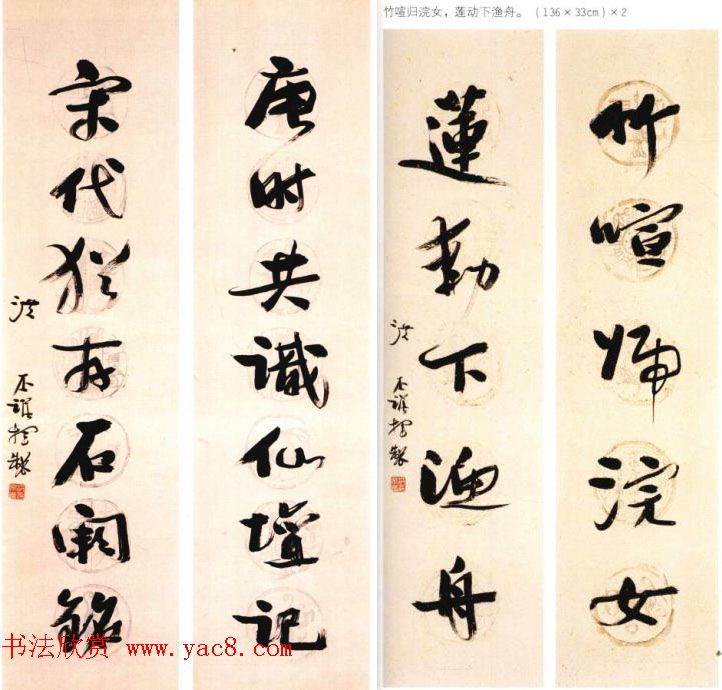 竹喧归浣女，莲动下渔舟。（136×33cm）×2
唐时共识仙坛记
宋代犹存石阙铭
竹喧归浣女
蓮動下漁舟
书法欣赏 www.yac8.com